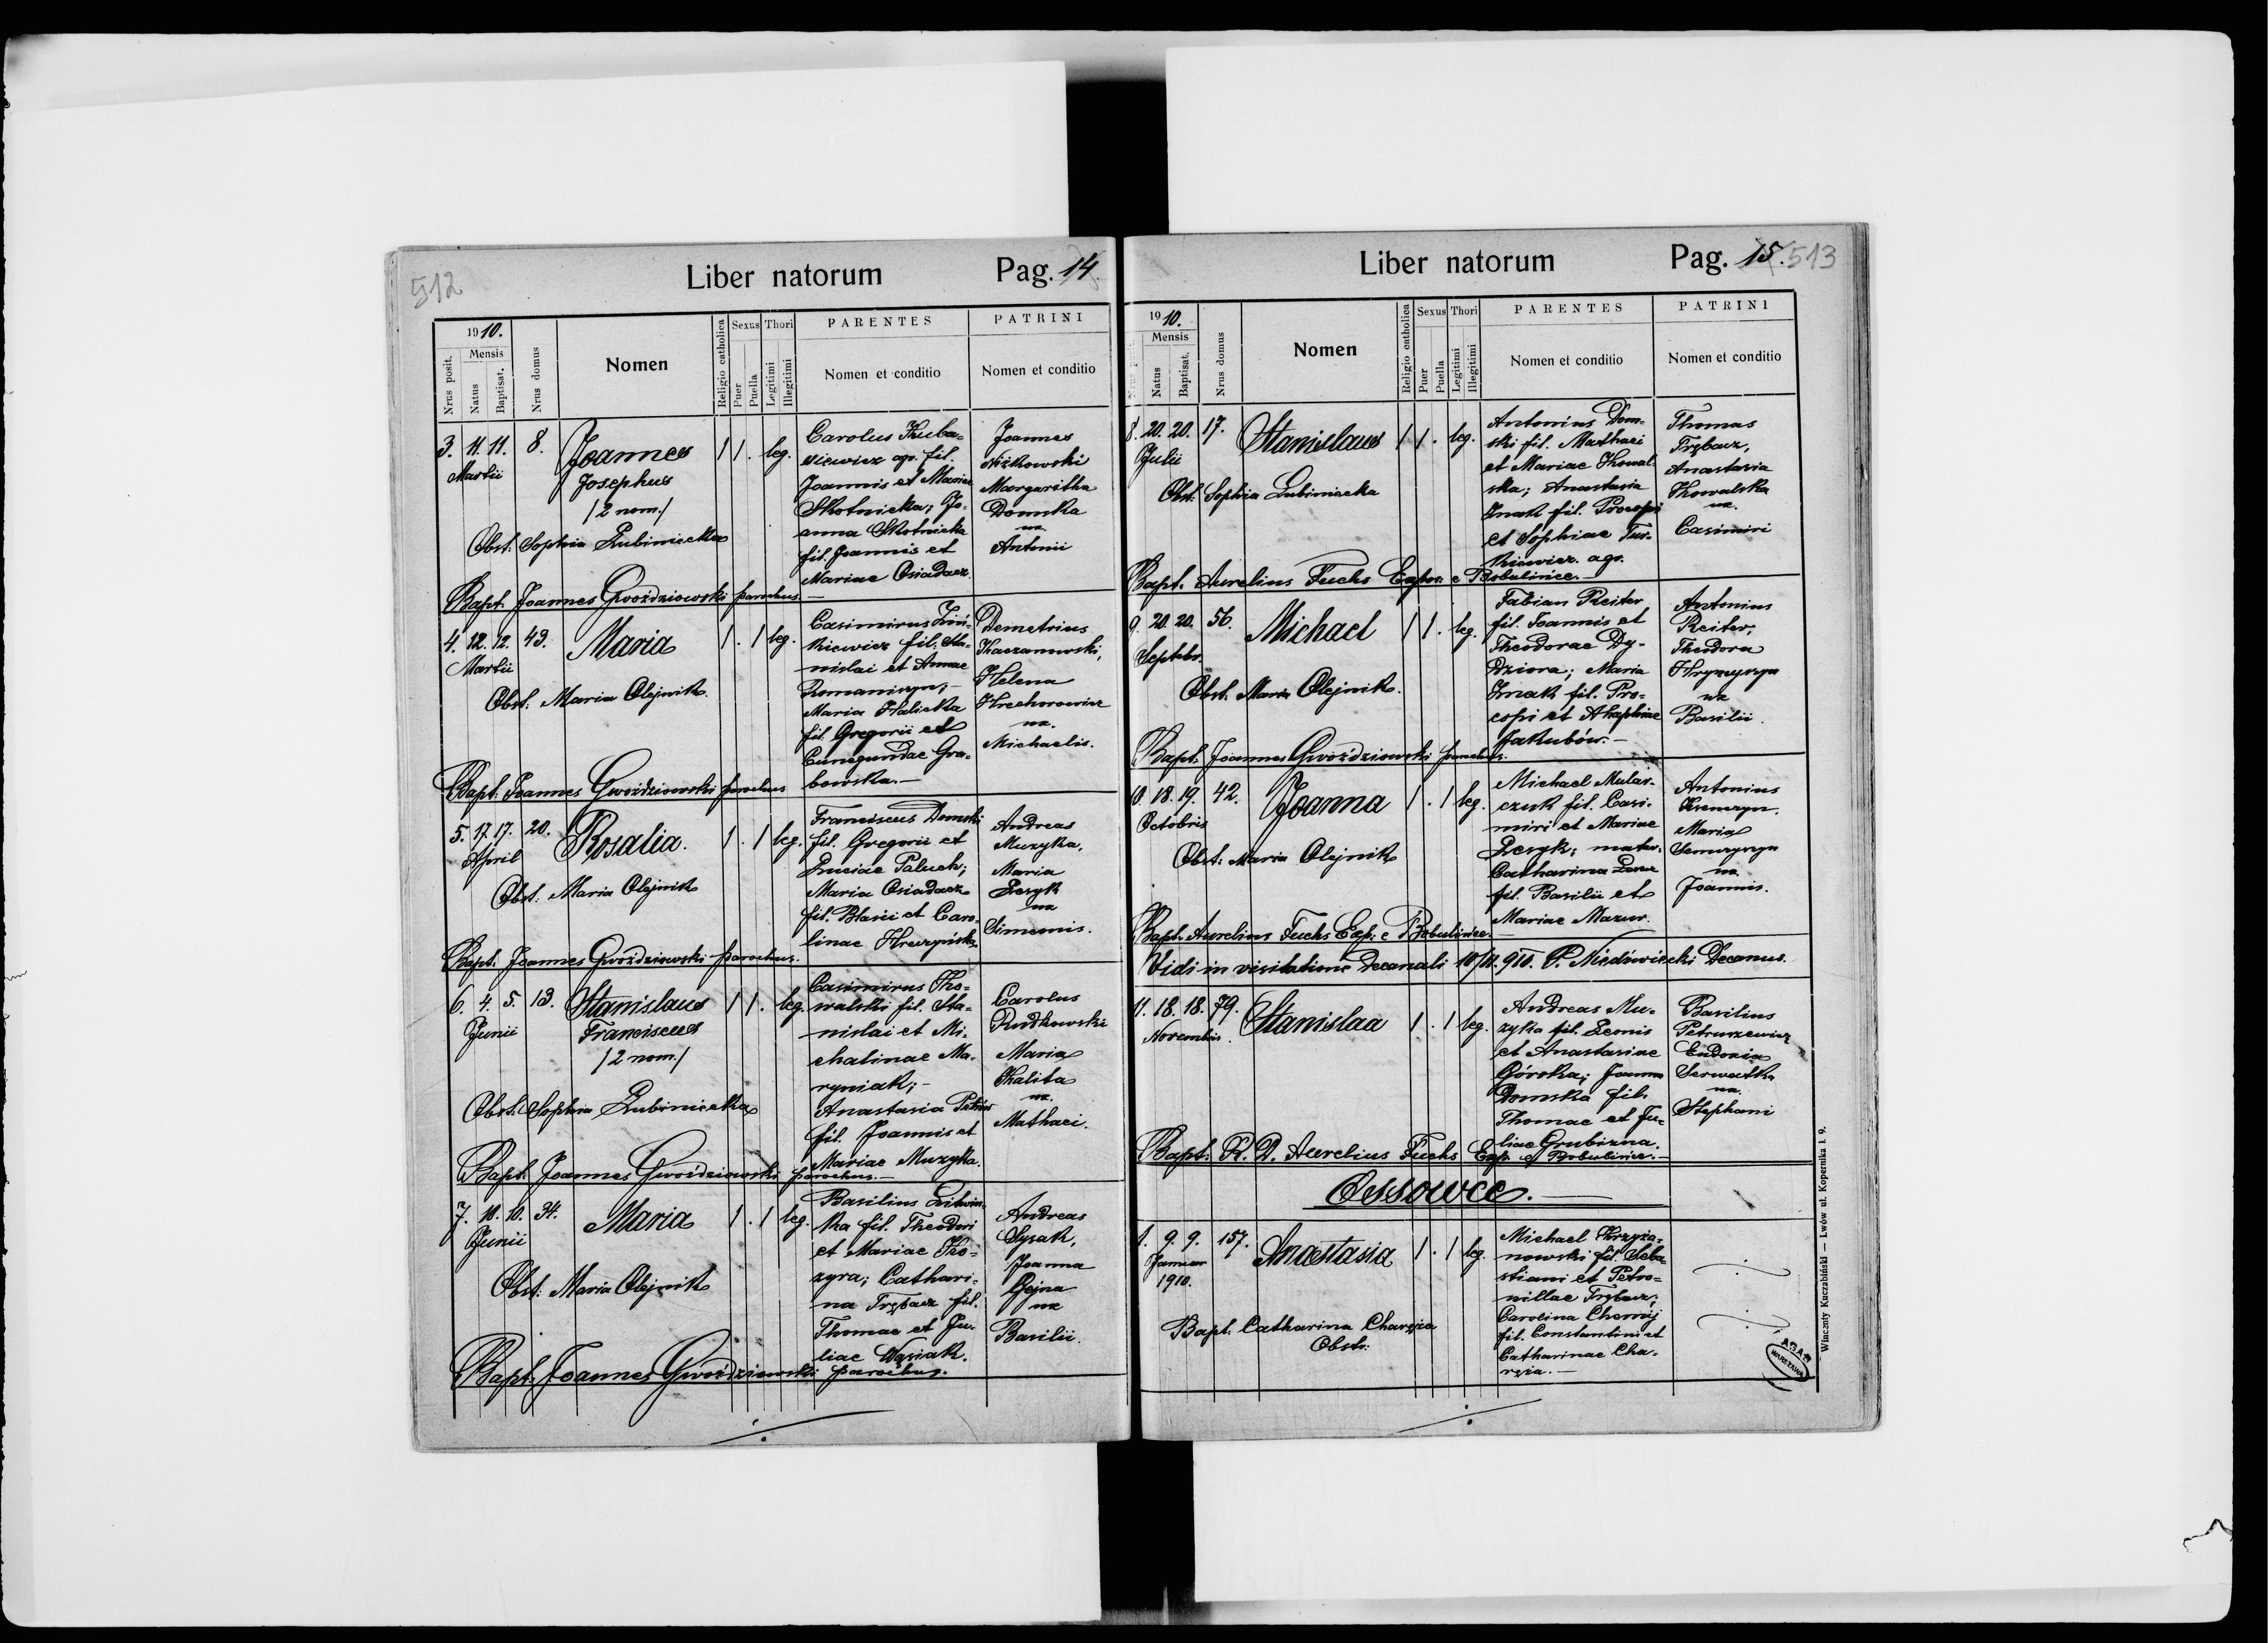 512
Liber natorum
Pag. 14.
1910.
Nrus posit.
Mensis
Natus
Baptisat.
Nrus domus
Nomen
Religio catholica
Sexus
Puer
Puella
Thori
Legitimi
Illegitimi
PARENTES
Nomen et conditio
PATRINI
Nomen et conditio
3. 11. 11. 8. Joannes 1 1. leg.
Martii
Josephus
/2 nom./
Obst. Sophia Lubiniecka
Carolus Kuba-
siewicz agr. fil.
Joannis et Mariae
Skotnicka; Jo-
anna Skotnicka
fil. Joannis et
Mariae Osiadacz.
Joannes
Niżkowski
Margaritha
Domska
ux.
Antonii
Bapt. Joannes Gwoździowski parochus.
4. 12. 12. 43. Maria 1. 1 leg.
Martii
Obst. Maria Olejnik.
Casimirus
kiewicz fil. Sta-
nislai et Annae
Romaniszyn;
Maria Halicka
fil. Gregorii et
Cunegundae Gra-
bowska.
Demetrius
Kaczanowski,
Helena
Hrechorowicz
ux.
Michaelis.
Bapt. Joannes Gwoździowski parochus
5. 17. 17. 20. Rosalia. 1. 1 leg.
April
Obst. Maria Olejnik
Franciscus Domski
fil. Gregorii et
Luciae Paluch;
Maria Osiadacz
fil. Blasii et Caro-
linae
Andreas
Muzyka,
Maria
Lesyk
ux
Simeonis.
Bapt. Joannes Gwoździowski parochus.
6. 4. 5. 13. Stanislaus 1 1. leg.
Junii
Franciscus
/2 nom./
Obst. Sophia Lubiniecka
Casimirus Ko-
walski fil. Sta-
nislai et Mi-
chalinae Ma-
ryniak;
Anastasia
fil. Joannis et
Mariae Muzyka.
Carolus
Rudkowski
Maria
Kalita
ux.
Mathaei.
Bapt. Joannes Gwoździowski parochus.
7. 10. 10. 34. Maria 1. 1 leg.
Junii
Obst. Maria Olejnik
Basilius Litwin-
ka fil. Theodori
et Mariae Ko-
zyra; Cathari-
na Trębacz fil.
Thomae et Ju-
liae Wąsiak.
Andreas
Sysak,
Joanna
Gejna
ux
Basilii.
Bapt. Joannes Gwoździowski parochus.
Liber natorum
Pag. 15. 513
1910.
Nrus posit.
Mensis
Natus
Baptisat.
Nrus domus
Nomen
Religio catholica
Sexus
Puer
Puella
Thori
Legitimi
Illegitimi
PARENTES
Nomen et conditio
PATRINI
Nomen et conditio
8. 20. 20. 17. Stanislaus 1 1. leg.
Julii
Obst. Sophia Lubiniecka
Antonius Dom-
ski fil. Mathaei
et Mariae Kowal-
ska; Anastasia
Hnak fil. Procopi
et Sophiae Tur-
kiewicz. agr.
Thomas
Trębacz,
Anastasia
Kowalska
ux.
Casimiri
Bapt. Aurelius Fuchs Expos. e Bobulińce.
9. 20. 20. 56. Michael 1 1. leg.
Septebr.
Obst. Maria Olejnik.
Fabian Reiter
fil. Joannis et
Theodorae Dy-
dziora; Maria
Hnak fil. Pro-
copi et Ahaphiae
Jakubów.
Antonius
Reiter,
Theodora
ux
Basilii.
Bapt. Joannes Gwoździowski parochus.
10. 18. 19. 42. Joanna 1. 1 leg.
Octobris
Obst. Maria Olejnik
Michael Mular-
czuk fil. Casi-
miri et Mariae
Lesyk; mater.
Catharina
fil. Basilii et
Mariae Mazur.
Antonius
Maria
ux.
Joannis.
Bapt. Aurelius Fuchs Exp. e Bobulińce.
Vidi in visitatione Decanali 10/11. 910. P. Niedźwiecki Decanus.
11. 18. 18. 79. Stanislaa 1. 1 leg.
Novembris.
Andreas Mu-
zyka fil. Leonis
et Anastasiae
Górska; Joanna
Domska fil.
Thomae et Ju-
liae Grubizna.
Basilius
Petruszewicz
Eudoxia
Serwatka
ux.
Stephani
Bapt. R. D. Aurelius Fuchs Exp. e Bobulińce.
Ossowce.
1. 9. 9. 157. Anastasia 1. 1 leg.
Januar
1910.
Bapt. Catharina Charęza
Obstr.
Michael Krzyża-
nowski fil. Seba-
stiani et Petro-
nillae Trębacz;
Carolina Chornij
fil. Constantini et
Catharinae Cha-
ręza.
Winczenty Kuczabiński — Lwów ul. Kopernika l. 9.
AGAD
WARSZAWA